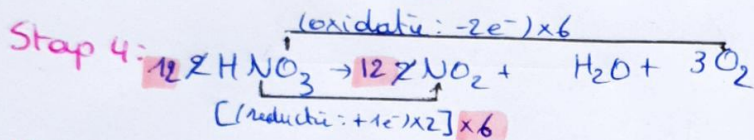 (oxidatie: -2e⁻)×6
Stap 4: 12 2 HNO₃ → 12 2 NO₂ + H₂O + 3 O₂
[(reductie: +1e⁻)×2] ×6